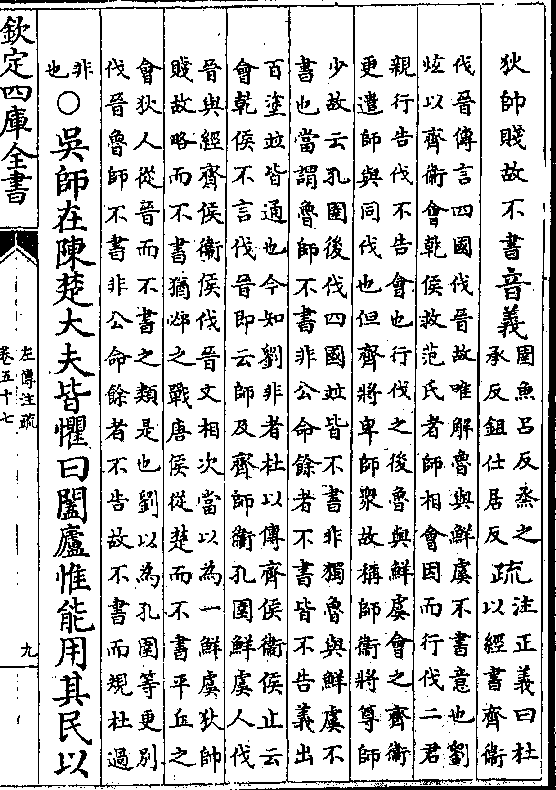 狄帥賤故不書音義圉魚呂反烝之
承反鉏仕居反疏注正義曰杜
以經書齊衛
伐晉傳言四國伐晉故唯解魯與鮮虞不書意也劉
炫以齊衛會乾侯救范氏者師相會因而行伐二君
親行告伐不告會也行伐之後魯與鮮虞會之齊衛
更遣師與同伐也但齊將卑師衆故稱師衛將尊師
少故云孔圉後伐四國並皆不書非獨魯與鮮虞不
書也當謂魯師不書非公命餘者不書皆不告義出
百塗並皆通也今知劉非者杜以傳齊侯衛侯止云
會乾侯不言伐晉即云師及齊師衛孔圉鮮虞人伐
晉與經齊侯衛侯伐晉文相次當以為一鮮虞狄帥
賤故略而不書猶邲之戰唐侯從楚而不書平丘之
會狄人從晉而不書之類是也劉以為孔圉等更別
伐晉魯師不書非公命餘者不告故不書而規杜過
非
也○吳師在陳楚大夫皆懼曰闔廬惟能用其民以
欽定四庫全書
左傳注疏
卷五十七
九